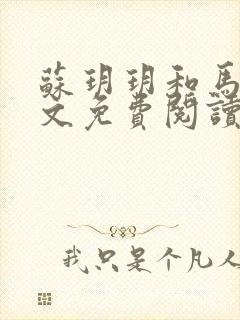 蘇玥玥和馬
文免費閱讀
我只是个凡人